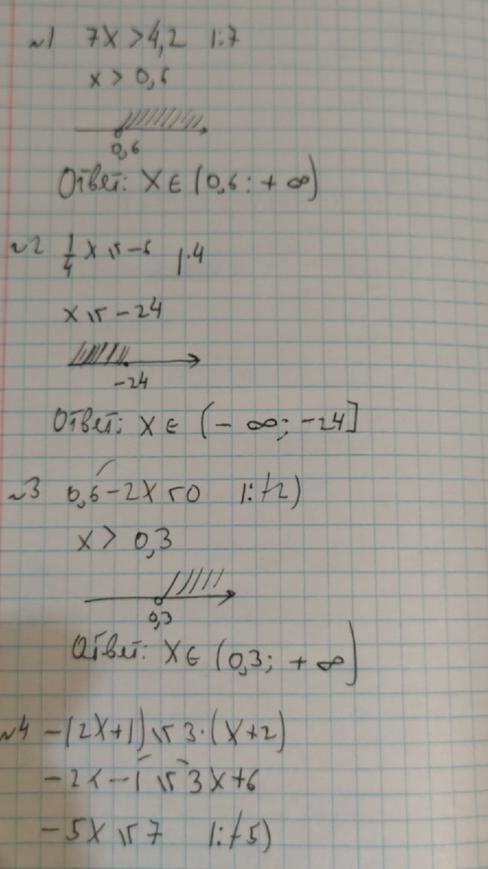 №1 7x > 4,2 |:7
x > 0,6
0,6
Ответ: x ∈ (0,6; +∞)
№2 1/4 x ≤ -6 |·4
x ≤ -24
-24
Ответ: x ∈ (-∞; -24]
№3 0,6 - 2x < 0 |:(-2)
x > 0,3
0,3
Ответ: x ∈ (0,3; +∞)
№4 -(2x+1) ≤ 3·(x+2)
-2x - 1 ≤ 3x + 6
-5x ≤ 7 |:(-5)